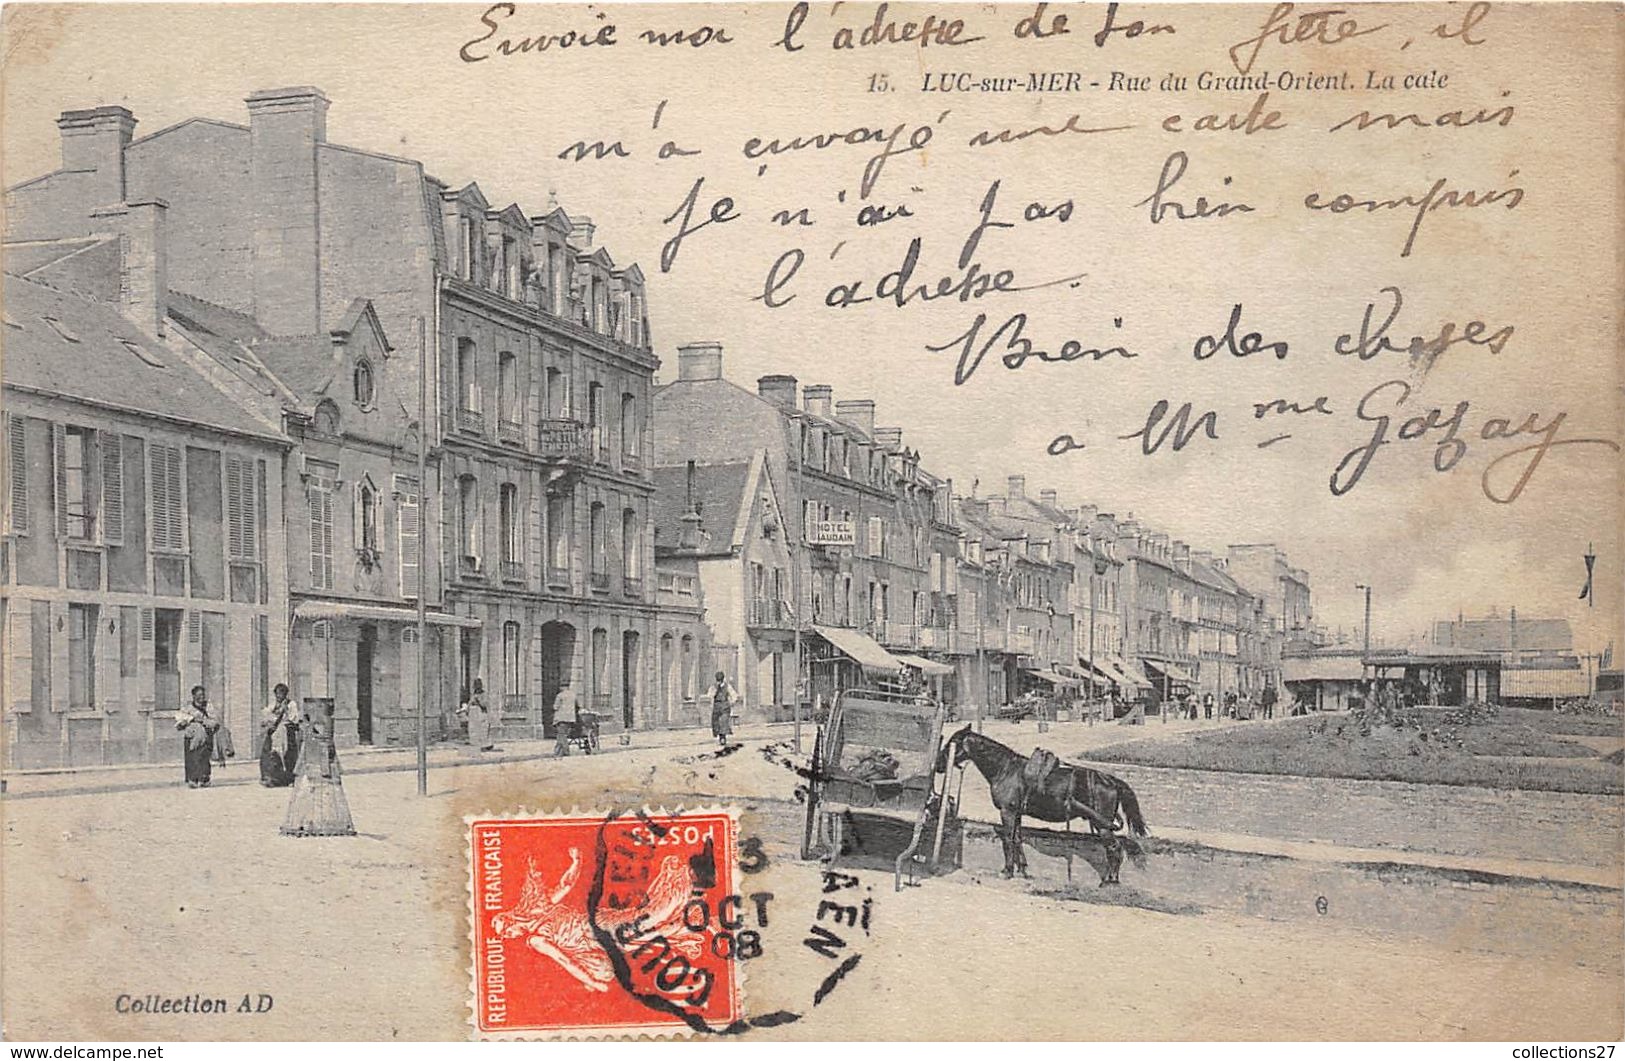 Envoie moi l'adresse de son frère, il
15. LUC-sur-MER - Rue du Grand-Orient. La cale
m'a envoyé une carte mais
je n'ai pas bien compris
l'adresse.
Bien des choses
a Mme
HOTEL
POSTES
REPUBLIQUE FRANÇAISE
COURSEULL
CAEN
3
OCT
08
Collection AD
collections27